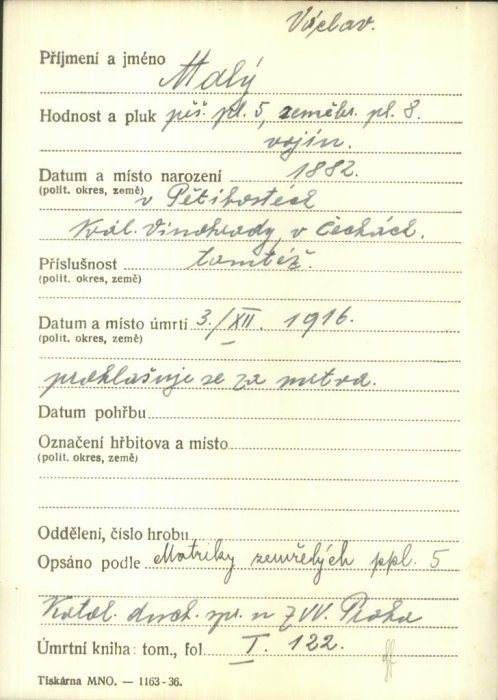 Václav.
Příjmení a jméno Malý
Hodnost a pluk pěš. pl. 5, zeměbr. pl. 8.
vojín.
Datum a místo narození 1882.
(polit. okres, země) v Pětihostěch
Král. Vinohrady, v Čechách.
Příslušnost tamtéž.
(polit. okres, země)
Datum a místo úmrtí 3./XII. 1916.
(polit. okres, země)
prohlašuje se za mrtva.
Datum pohřbu
Označení hřbitova a místo
(polit. okres, země)
Oddělení, číslo hrobu
Opsáno podle Matriky zemřelých ppl. 5
Katol. duch. spr. u ZVV. Praha
Úmrtní kniha: tom., fol. I. 122.
Tiskárna MNO. — 1163-36.